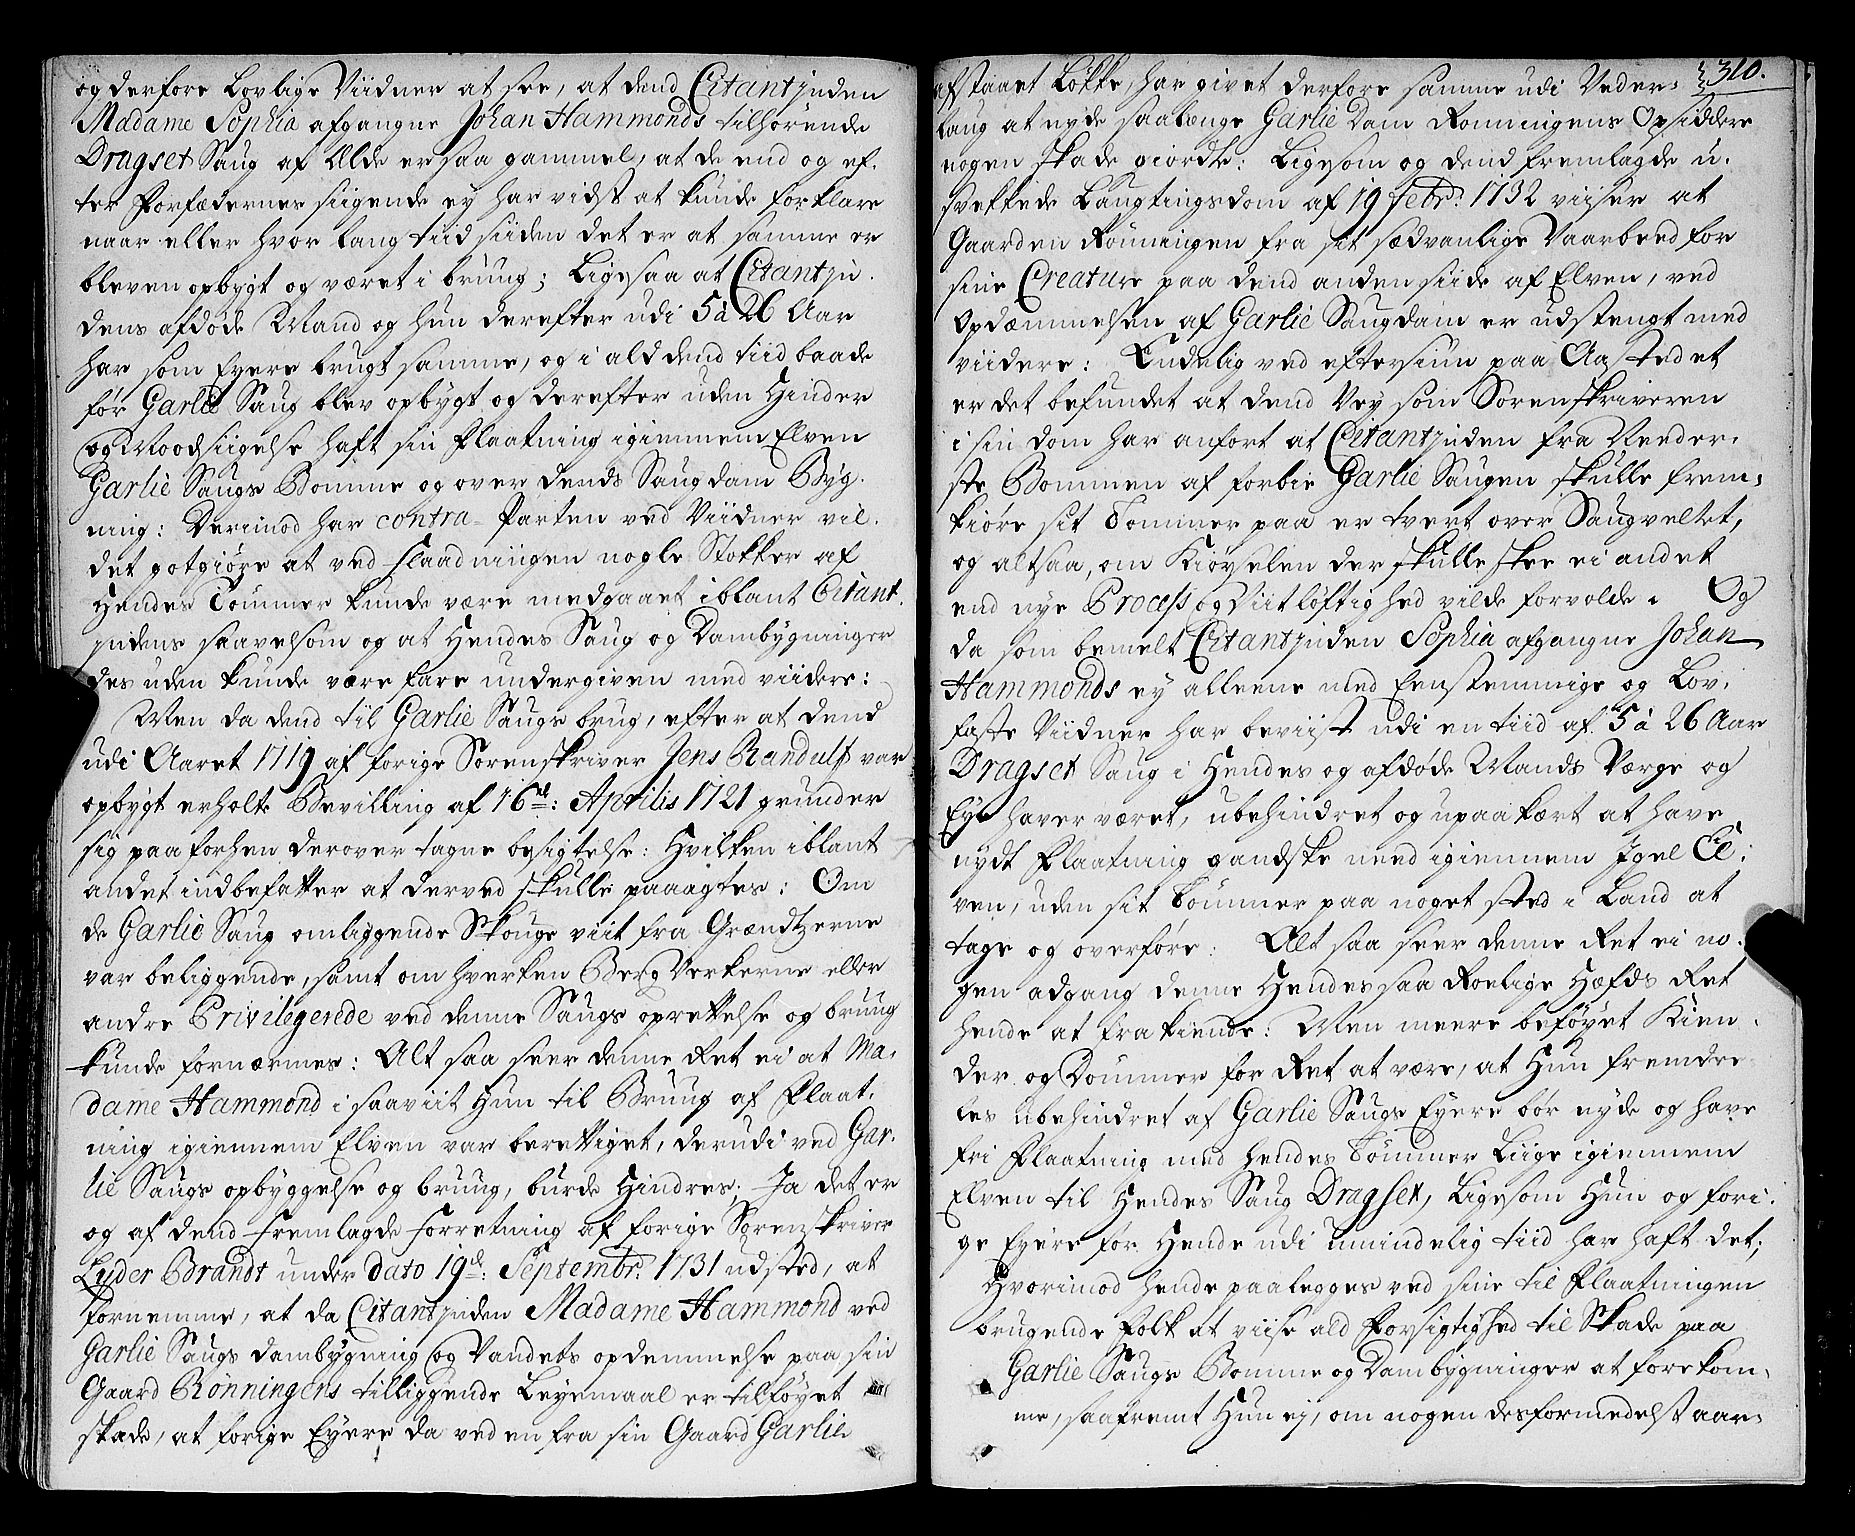 og derfore Lovlige Viidner at see, at dend Citantjnden
Madame Sophia afgangne Johan Hammonds tilhørende
Dragset Saug af Ælde er saa gammel, at de end og ef-
ter Forfædernes siigende ey har vidst at kunde forklare
naar eller hvor lang tiid siiden det er at samme er
bleven opbygt og været i bruug; Ligesaa at Citantjn-
dens afdøde Mand og hun derefter udi 5 à 26 Aar
har som Eyere brugt samme, og i ald dend tiid baade
før Garlie Saug blev opbygt og derefter uden Hinder
og Moodsiigelse haft sin Flaatning igiennem Elven
Garlie Saugs Bomme og over dends Saugdam Byg-
ning: Derimod har contra-Parten ved Viidner vil-
det gotgiøre at ved flaadningen nogle Stokker af
Hendes Tømmer kunde være medgaaet iblant Citant-
jndens saavelsom og at Hendes Saug og Dambygninger
des uden kunde være fare undergiven med viidere:
Men da dend til Garlie Saugs brug, efter at dend
udi Aaret 1719 af forige Sorenskriver Jens Randulf var
opbygt erholte Bevilling af 16de: Aprilis 1721 grunder
sig paa forhen derover tagne besigtelse: Hvilken iblant
andet indbefatter at derved skulle paaagtes: Om
de Garlie Saug omliggende Skouge viit fra Grændtzerne
var beliggende, samt om hverken BergVerkerne eller
andre Privilegerede ved denne Saugs oprettelse og bruug
kunde fornærmes: Alt saa seer denne Ret ei at Ma-
dame Hammond i saaviit Hun til Bruug af Flaat-
ning igiennem Elven var berettiget, derudi ved Gar-
lie Saugs opbyggelse og bruug, burde Hindres; Ja det er
og af dend fremlagde forretning af forige Sorenskriver
Lyder Brandt under dato 19de: Septembr: 1731 udsted, at
fornemme, at da Citantjnden Madame Hammond ved
Garlie Saugs dambygning og Vandets opdemmelse paa sin
Gaard Rønningens tilliggende Leyemaal er tilføyet
skade, at forige Eyere da ved en fra sin Gaard Garlie
310.
afstaaet Løkke, har givet derfore samme udi Veder-
laug at nyde saalænge Garlie Dam Rønningens Opsiddere
nogen skade giorde: Ligesom og dend fremlagde u-
svekkede Laugtingsdom af 19 Febr: 1732 viiser at
Gaarden Rønningen fra sit sædvanlige Vaarbeed for
sine Creature paa dend anden siide af Elven, ved
Opdæmmelsen af Garlie Saugdam er udstengt med
viidere: Endelig ved eftersiun paa Aastedet
er det befundet at dend Vey som Sorenskriveren
i sin dom har anført at Citantjnden fra Neder-
ste Bommen af forbie Garlie Saugen skulle frem-
kiøre sit Tømmer paa er tvert over Saugveltet,
og altsaa, om Kiøyselen der skulle skee ei andet
end nye Process og Viitløftighed vilde forvolde. Og
da som bemelt Citantjnden Sophia afgangne Johan
Hammonds ey alleene med Eenstemmige og Lov-
faste Viidner har beviist udi en tiid af 5 à 26 Aar
Dragset Saug i Hendes og afdøde Mands Værge og
Eye haver været, ubehindret og upaakært at have
nydt Flaatning gandske need igiennem Igel El-
ven, uden sit Tømmer paa noget sted i Land at
tage og overføre: Alt saa seer denne Ret ei no-
gen adgang denne Hendes saa Roelige Hæfds Ret
hende at frakiende: Men meere beføyet Kien-
der og Dømmer for Ret at være, at Hun fremde-
les ubehindret af Garlie Saugs Eyere bør nyde og have
fri Flaatning med hendes Tømmer Liige igiennem
Elven til Hendes Saug Dragset, Ligesom Hun og fori-
ge Eyere før Hende udi umindelig tiid har haft det;
Hvorimod hende paalegges ved sine til Flaatningen
brugende Folk at viise ald Forsigtighed til Skade paa
Garlie Saugs Bomme og Dambygninger at forekom-
me, saafremt Hun ej, om nogen desformedelst aar-